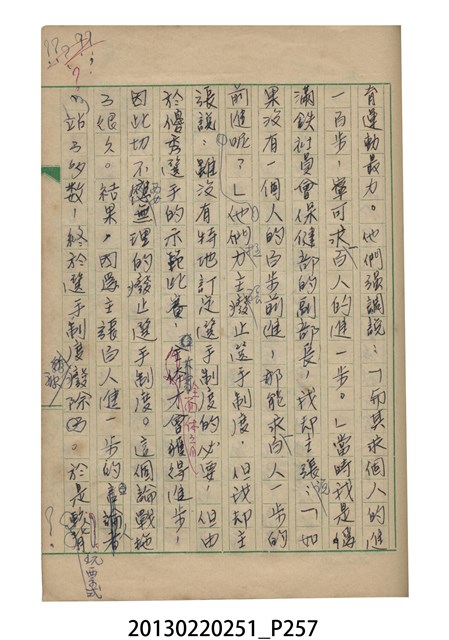 有運動最力。他們强調說:「而其求個人的進
一百步,寧可求百人的進一步。」當時我是
滿鉄社員會保健部的副部長,我却主張:「如
果沒有一個人的百步前進,那能求百人一步的
前進呢?」他們力主癈止選手制度,但我却主
張說:雖沒有特地訂定選手制度的必要,但由
於優秀選手的示範比賽,全体才會獲得進步,
因此切不可無理的癈止選手制度。這個論戰拖
了很久。結果,因為主張百人進一步的
站了多數,終於選手制度癈除了。於是
20130220251_P257